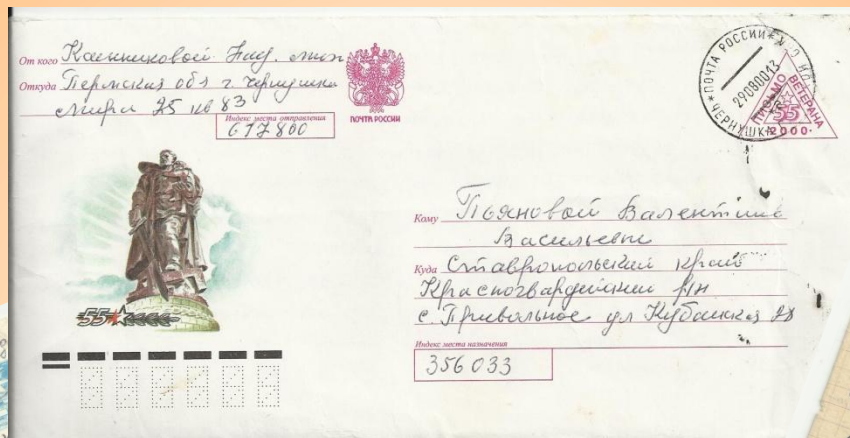 От кого Канниковой
Откуда Пермская обл г. Чернушка
Мира 25 кв 83
Индекс места отправления
617800
ПОЧТА РОССИИ
ПОЧТА РОССИИ
29080013
ЧЕРНУШКА
ПИСЬМО ВЕТЕРАНА
55
2000
55
Кому Пьяновой Валентине
Васильевне
Куда Ставропольский край
Красногвардейский р/н
с. Привольное ул Кубанская 28
Индекс места назначения
356033